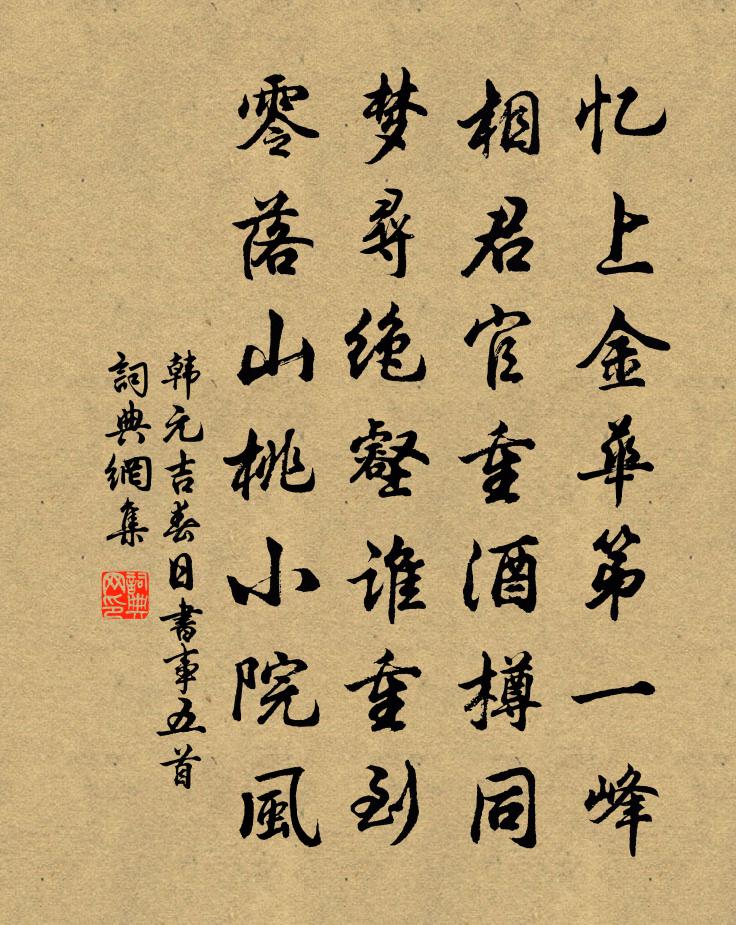 忆上金华第一峰
相君官重酒樽同
梦寻绝壑谁重到
零落山桃小院風
韩元吉春日書事五首
詞典網集
詞典网印